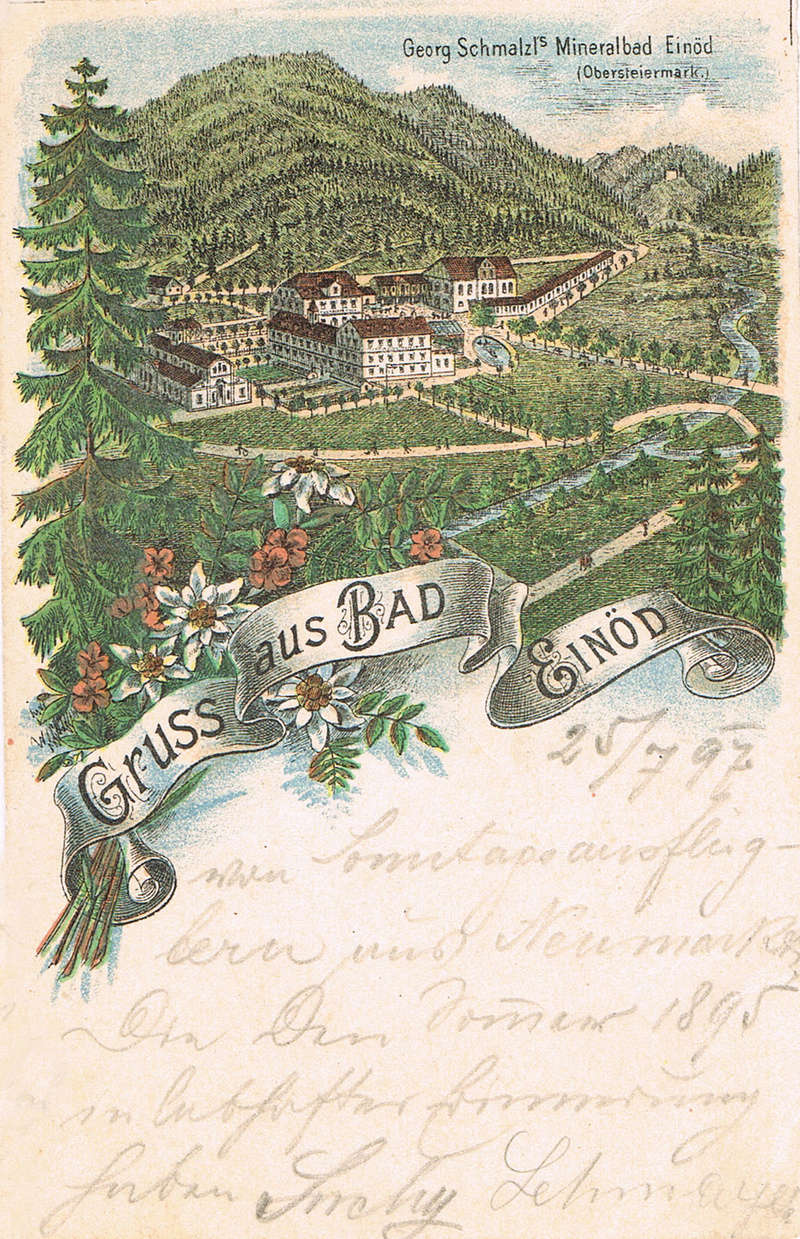 Georg Schmalzl's Mineralbad Einöd
(Obersteiermark.)
Gruss aus Bad Einöd
25/7 97
von Sonntagsausflüg-
lern aus Neumarkt
Die Den Sommer 1895
in lebhafter Erinnerung
haben Lehmayer